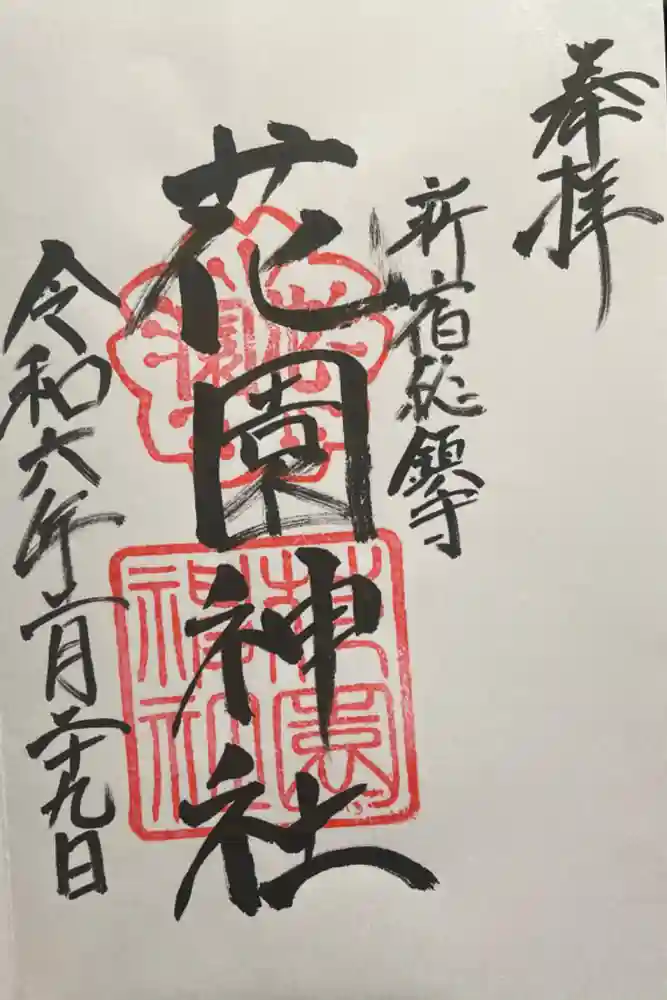 奉拝
新宿総鎮守
花園神社
花園
令和六年二月二十九日